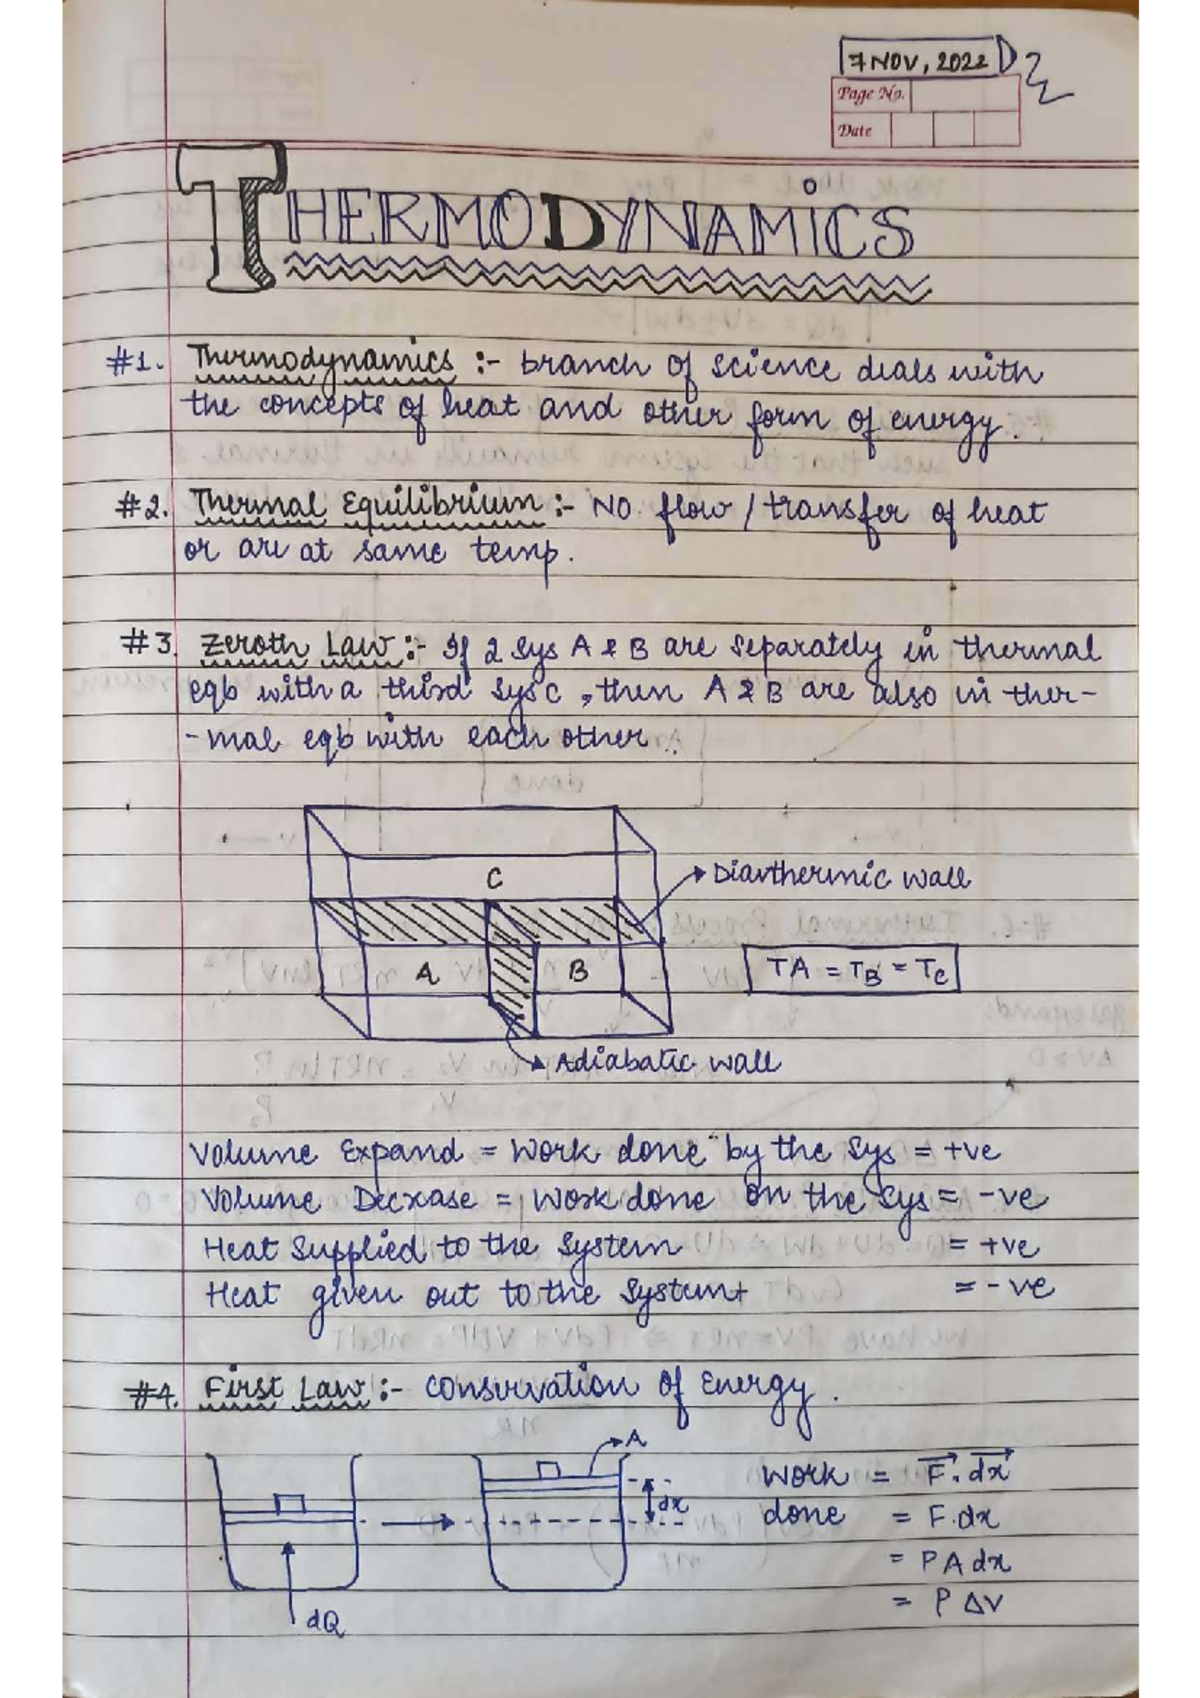 7 NOV, 2022
Page No.
Date
THERMODYNAMICS
#1. Thermodynamics :- branch of science deals with
the concepts of heat and other form of energy.
#2. Thermal Equilibrium :- No flow / transfer of heat
or are at same temp.
#3. Zeroth Law :- If 2 sys A & B are separately in thermal
eqb with a third sys C, then A & B are also in ther-
-mal eqb with each other.
C
Diarthermic wall
A
B
TA = TB = TC
Adiabatic wall
Volume Expand = Work done by the sys = +ve
Volume Decrease = Work done on the sys = -ve
Heat Supplied to the System = +ve
Heat given out to the System = -ve
#4. First Law :- Conservation of Energy.
A
dx
dQ
Work = F⃗. dx⃗
done = F. dx
= PA dx
= P ΔV